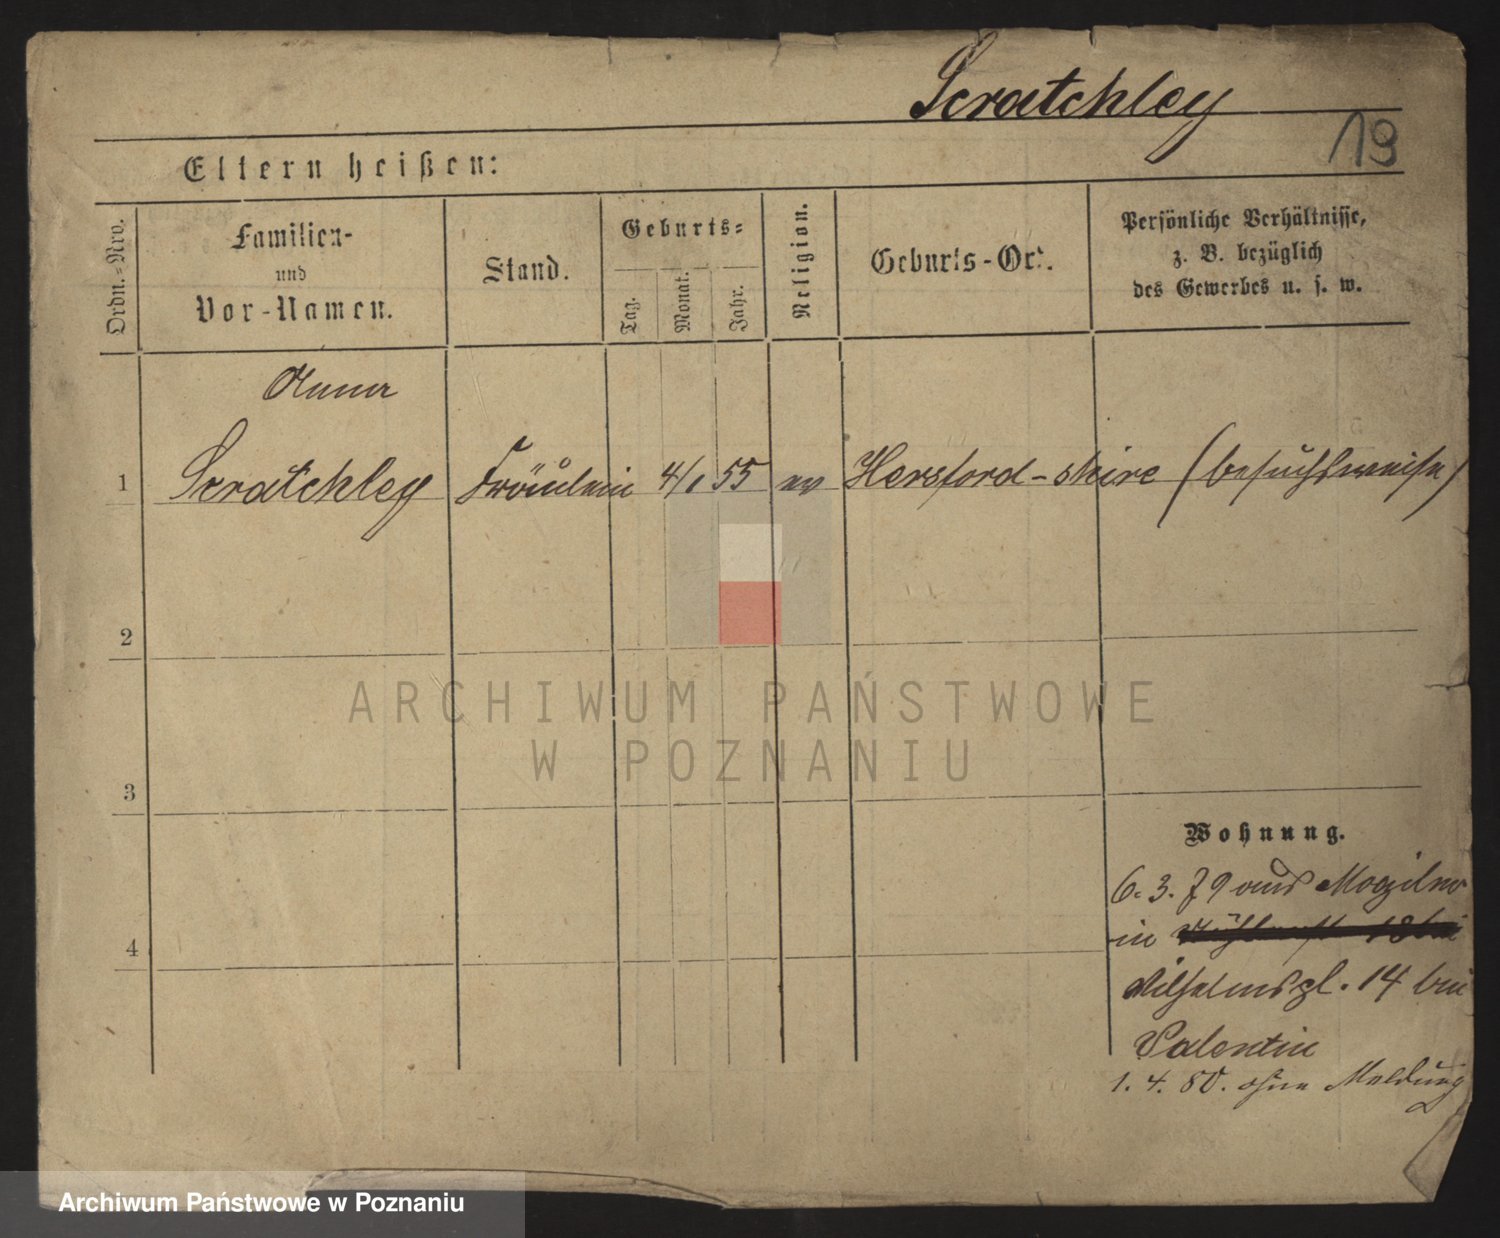 Scratchley
19
Eltern heißen:
Ordn.-Nro.
Familien-
und
Vor-Namen.
Stand.
Geburts-
Tag.
Monat.
Jahr.
Religion.
Geburts-Ort.
Persönliche Verhältnisse,
z. B. bezüglich
des Gewerbes u. s. w.
Anna
1 Scratchley Fräulein 4/1 55 ev Hersford-shire (besuchsweise)
2
3
4
Wohnung.
6. 3. 79 aus Mogilno
in
Wilhelmspl. 14 bei
Valentin
1. 4. 80. ohne Meldung
ARCHIWUM PAŃSTWOWE
W POZNANIU
Archiwum Państwowe w Poznaniu